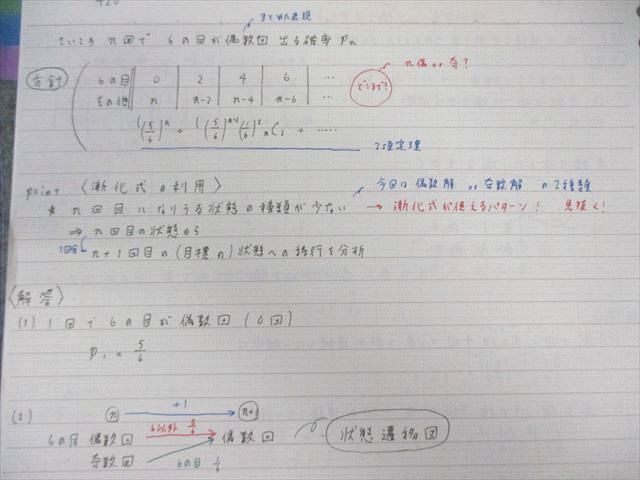 さいころ n回で 6の目が偶数回 出る確率 Pn
n偶 or 奇?
方針
6の目 0 2 4 6 ...
その他 n n-2 n-4 n-6 ...
どこまで?
(5/6)^n + (5/6)^n-2 (1/6)^2 nC2 + ......
2項定理
point 〈漸化式の利用〉
今回は 偶数解 or 奇数解 の2種類
★ n回目になりうる状態の種類が少ない → 漸化式が使えるパターン! 見抜く!
⇒ n回目の状態から
1回分 n+1回目の(目標の)状態への移行を分析
〈解答〉
(1) 1回で6の目が偶数回(0回)
P1 = 5/6
(2) n +1 n+1
6の目 偶数回 6以外 5/6 偶数回 状態遷移図
奇数回 6の目 1/6